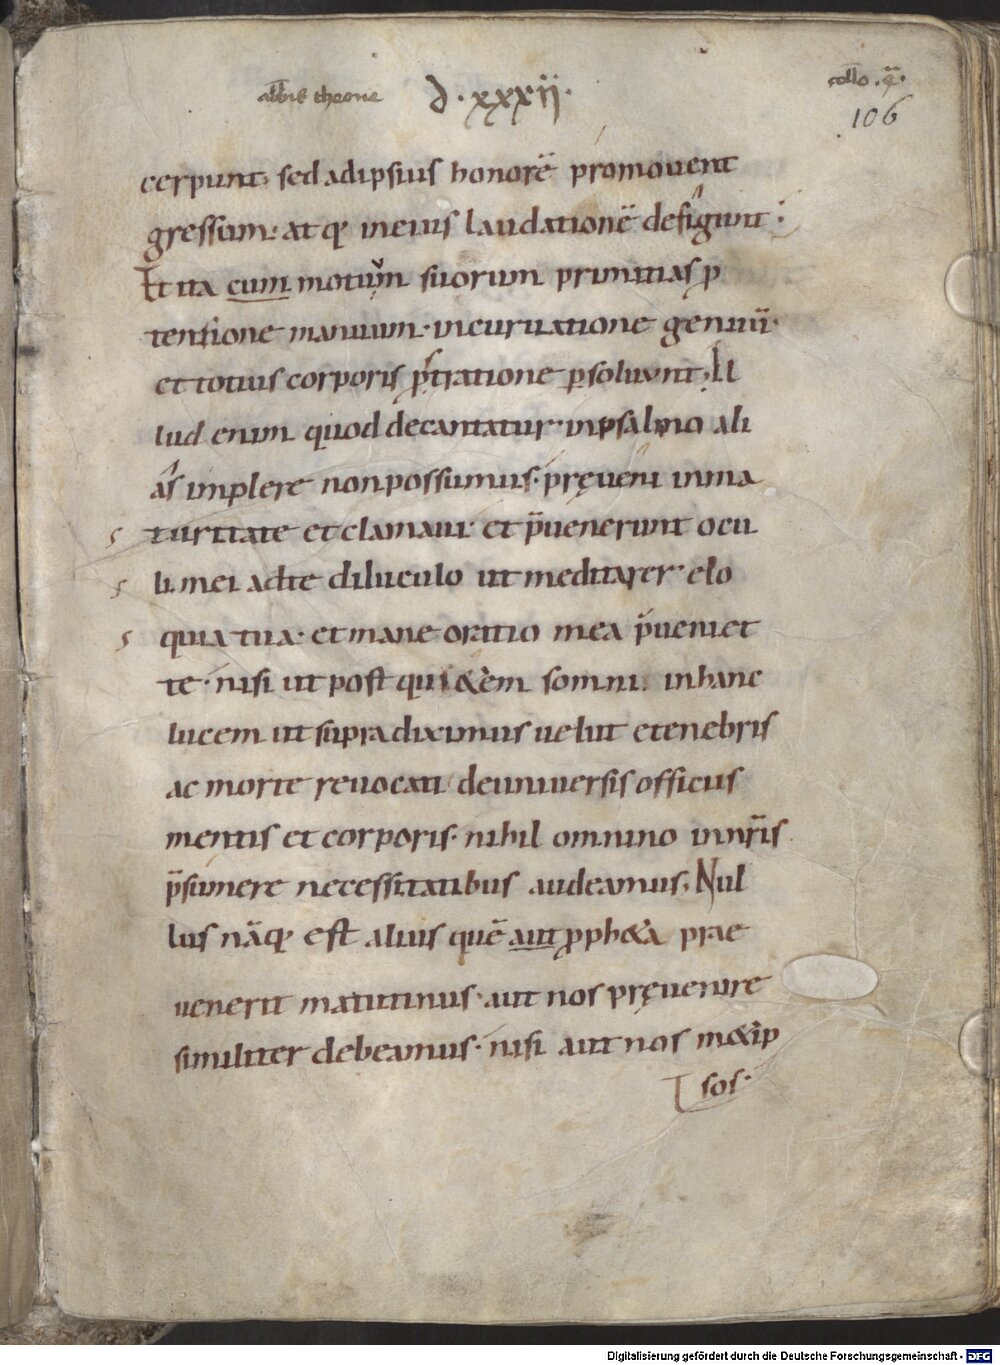 abb̄is theone d·xxxii· coll̄o .q̄.
106
cerpunt· sed ad ipsius honorē promovent
gressum· atq· in eius laudationē defigunt:
Et ita cum motuum suorum primitias p
tentione manuum· incuruatione genuū·
et totius corporis p̄stratione psoluunt; Il
lud enim quod decantatur· in psalmo ali
as implere non possumus· pręueni in ma
turitate et clamaui· et p̄uenerunt ocu
li mei ad te diluculo ut meditarer· elo
quia tua· et mane oratio mea p̄ueniet
te· nisi ut post qui&em somni in hanc
lucem ut supra diximus uelut e tenebris
ac morte reuocati de uniuersis officiis
mentis et corporis· nihil omnino in nr̄is
p̄sumere necessitatibus audeamus; Nul
lus nāq· est alius quē aut ppḣ&a prae
uenerit matutinus· aut nos pręuenire
similiter debeamus· nisi aut nos m&ip
sos·
Digitalisierung gefördert durch die Deutsche Forschungsgemeinschaft - DFG